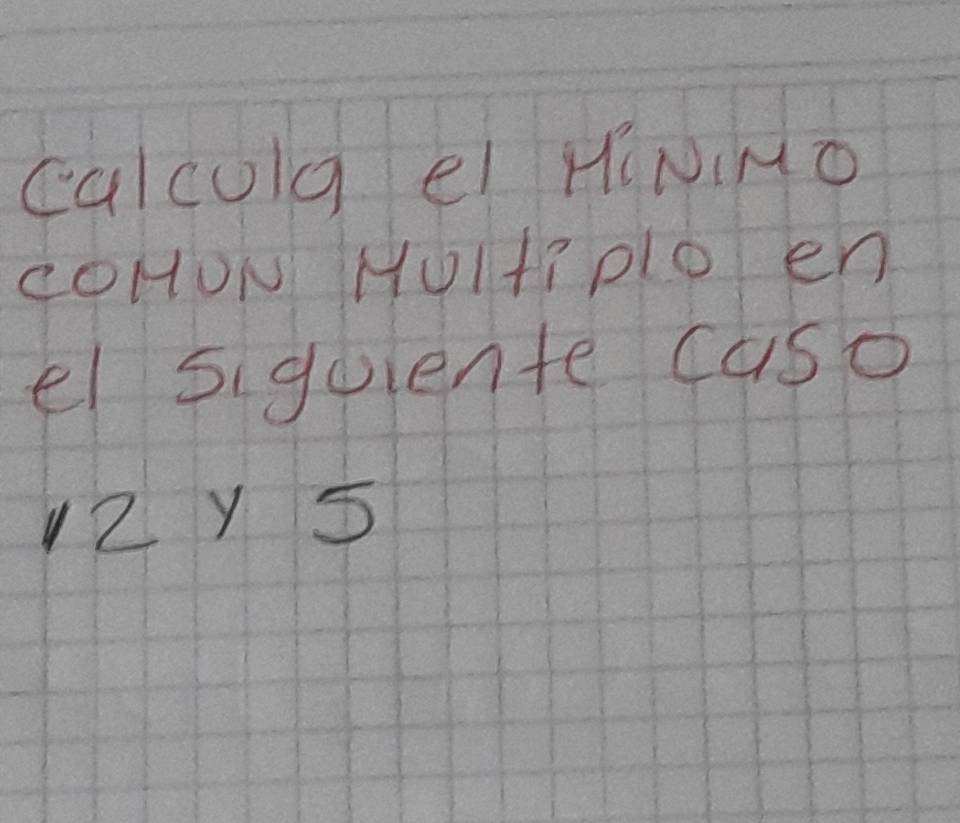 Calcula el MíNiMO
COMUN MUltiplo en
el siguiente caso
12 y 5